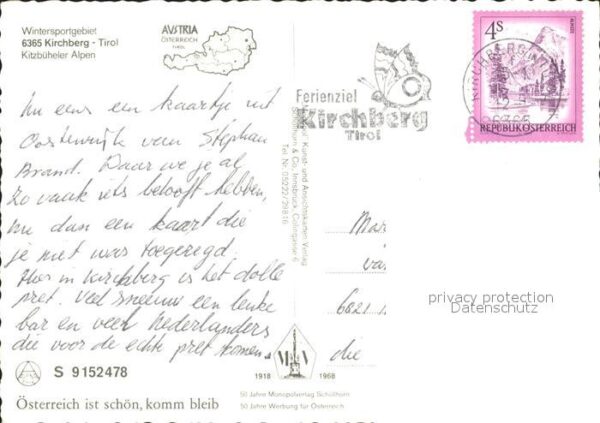 Wintersportgebiet
6365 Kirchberg - Tirol
Kitzbüheler Alpen
AUSTRIA
ÖSTERREICH
TIROL
4S
REPUBLIK ÖSTERREICH
Ferienziel
Kirchberg
Tirol
Nu eens een kaartje uit
Oostenrijk van Stephan
Brand. Daar we je al
zo vaak iets belooft hebben,
nu dan een kaart die
je niet was toegezegd.
Hier in Kirchberg is het dolle
pret. Veel sneeuw een leuke
bar en veel Nederlanders
die voor de echte pret komen.
Kunst- und Ansichtskarten Verlag
Schöllhorn & Co., Innsbruck
Tel Nr. 05222/29816
Mar
va
6821
die
privacy protection
Datenschutz
M V
1918 1968
50 Jahre Monopolverlag Schöllhorn
50 Jahre Werbung für Österreich
S 9152478
Österreich ist schön, komm bleib